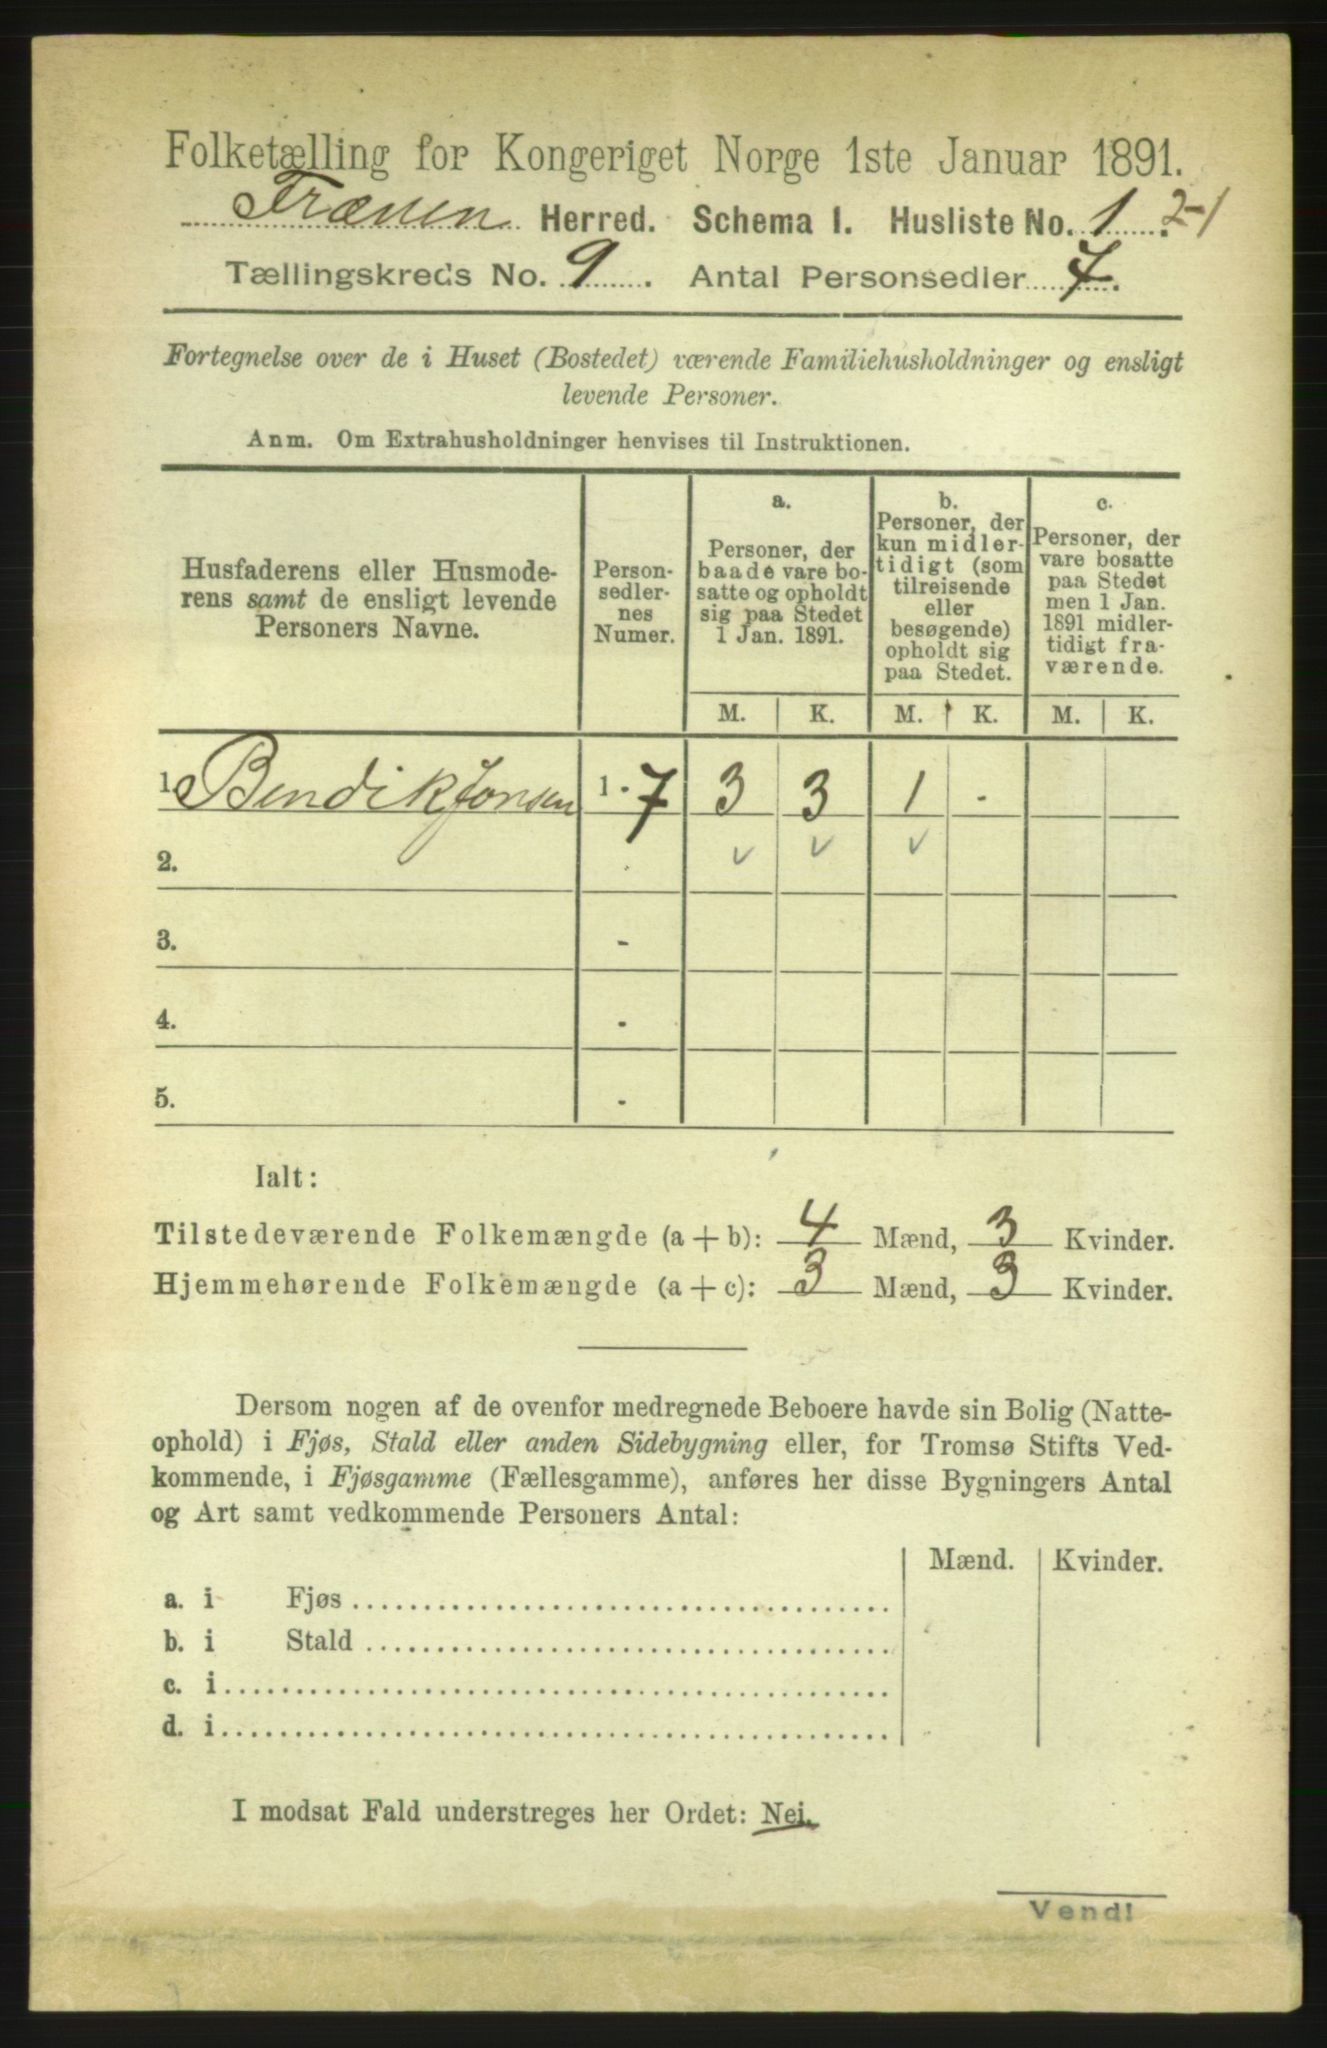 Folketælling for Kongeriget Norge 1ste Januar 1891.
Frænen Herred. Schema I. Husliste No. 1. 2-1
Tællingskreds No. 9. Antal Personsedler 7.
Fortegnelse over de i Huset (Bostedet) værende Familiehusholdninger og ensligt
levende Personer.
Anm. Om Extrahusholdninger henvises til Instruktionen.
Husfaderens eller Husmode-
rens samt de ensligt levende
Personers Navne.
Person-
sedler-
nes
Numer.
a.
Personer, der
baade vare bo-
satte og opholdt
sig paa Stedet
1 Jan. 1891.
b.
Personer, der
kun midler-
tidigt (som
tilreisende
eller
besøgende)
opholdt sig
paa Stedet.
c.
Personer, der
vare bosatte
paa Stedet
men 1 Jan.
1891 midler-
tidigt fra-
værende.
M. K. M. K. M. K.
1. Bendik Jonsen 1 - 7 3 3 1 -
2. -
3. -
4. -
5. -
Ialt:
Tilstedeværende Folkemængde (a + b): 4 Mænd, 3 Kvinder.
Hjemmehørende Folkemængde (a + c): 3 Mænd, 3 Kvinder.
Dersom nogen af de ovenfor medregnede Beboere havde sin Bolig (Natte-
ophold) i Fjøs, Stald eller anden Sidebygning eller, for Tromsø Stifts Ved-
kommende, i Fjøsgamme (Fællesgamme), anføres her disse Bygningers Antal
og Art samt vedkommende Personers Antal:
Mænd. Kvinder.
a. i Fjøs
b. i Stald
c. i
d. i
I modsat Fald understreges her Ordet: Nei.
Vend!